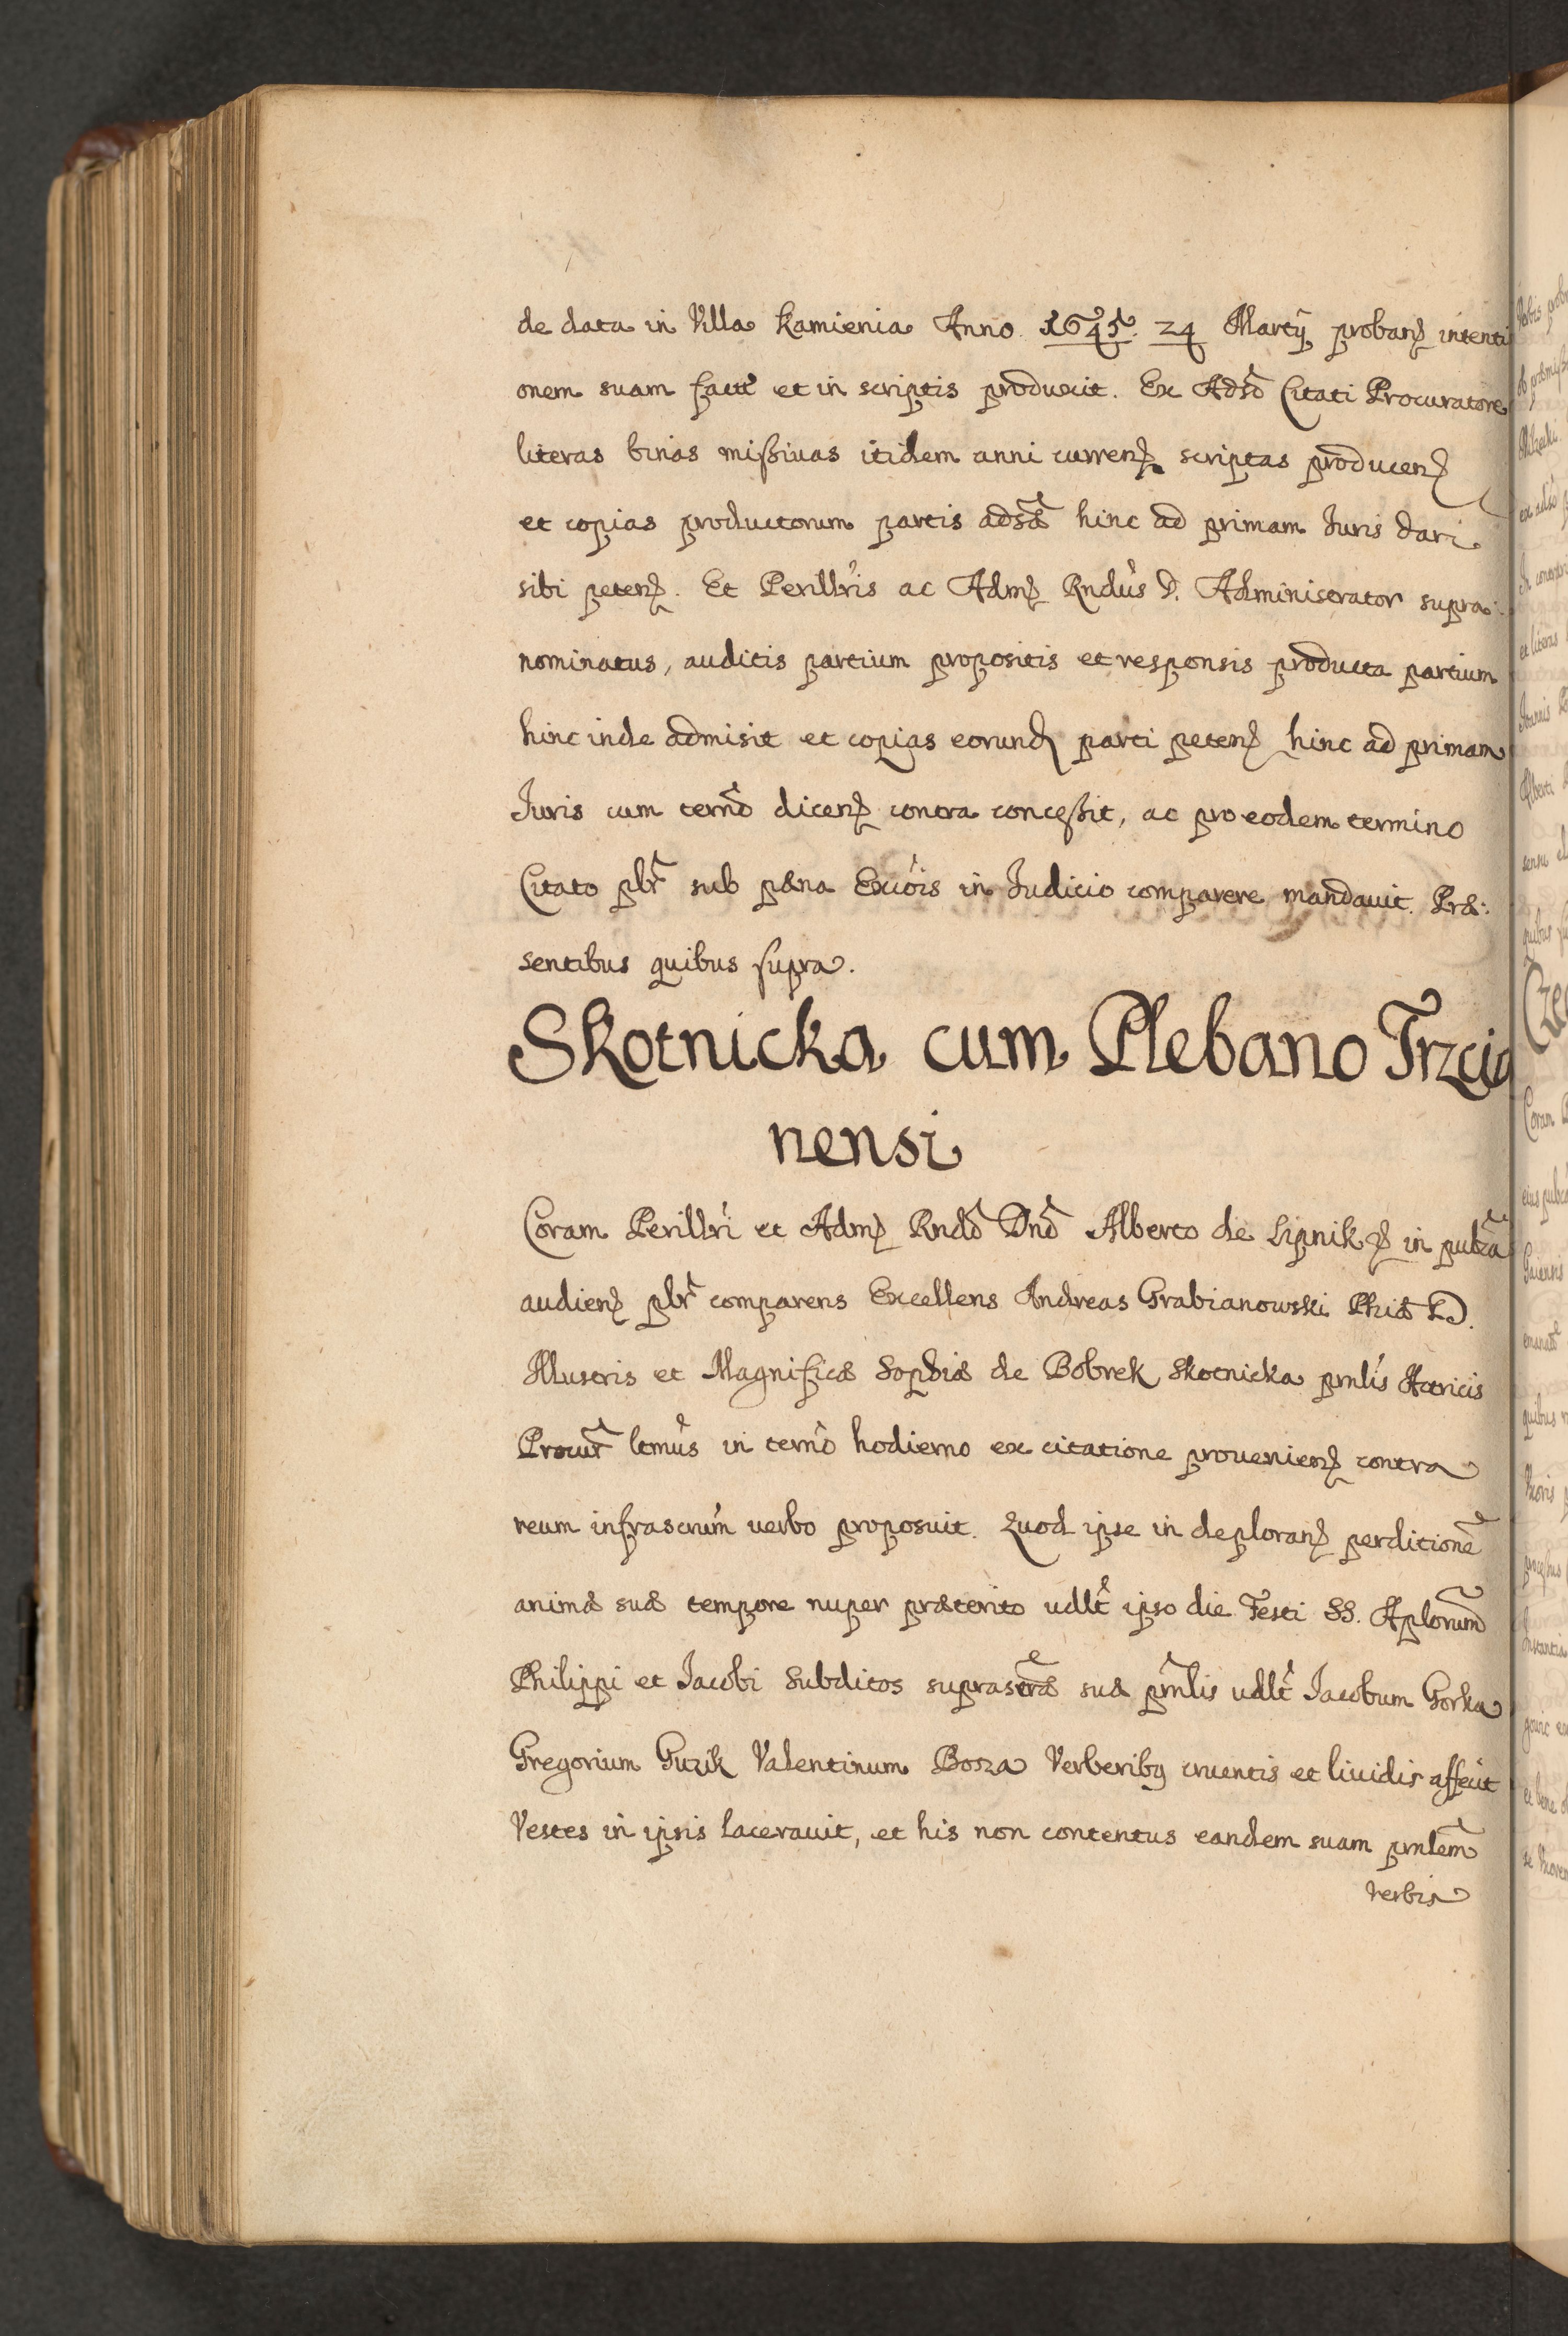 de data in Villa Kamienia Anno 1645. 24 Martÿ probanꝫ intenti
onem suam factt et in scriptis produxit. Ex Adsõ Citati Procuratore
literas binas mißiuas itidem anni currenꝫ scriptas producenꝫ
et copias productorum partis adsæ hinc ad primam Iuris dari
sibi petenꝫ. Et Perillris ac Admꝫ Rndus D. Administrator supra:
nominatus, auditis partium propositis et responsis producta partium
hinc inde admisit et copias eorundꝫ parti petenꝫ hinc ad primam
Iuris cum termõ dicenꝫ contra conceßit, ac pro eodem termino
Citato pbr sub pæna Excõis in Iudicio comparere mandauit. Præ:
sentibus quibus supra.
Skotnicka cum Plebano Trzcia
nensi
Coram Perillri et Admꝫ Rndõ Dnõ Alberto de Lipnik ꝫ in publca
audienꝫ pbr comparens Excellens Andreas Grabianowski Phiæ D.
Illustris et Magnificæ Sophiæ de Bobrek Skotnicka prnlis Actricis
Procur ltmus in termõ hodierno ex citatione prouenienꝫ contra
reum infrascrum uerbo proposuit. Quod ipse in deploranꝫ perditionẽ
animæ suæ tempore nuper præterito udlt ipso die Festi SS. Aplorum
Philippi et Iacobi Subditos suprascræ suæ prnlis udlt Iacobum Gorka
Gregorium Guzik Valentinum Boza Verberibꝰ cruentis et liuidis affecit
Vestes in ipsis lacerauit, et his non contentus eandem suam prnlem
verbis